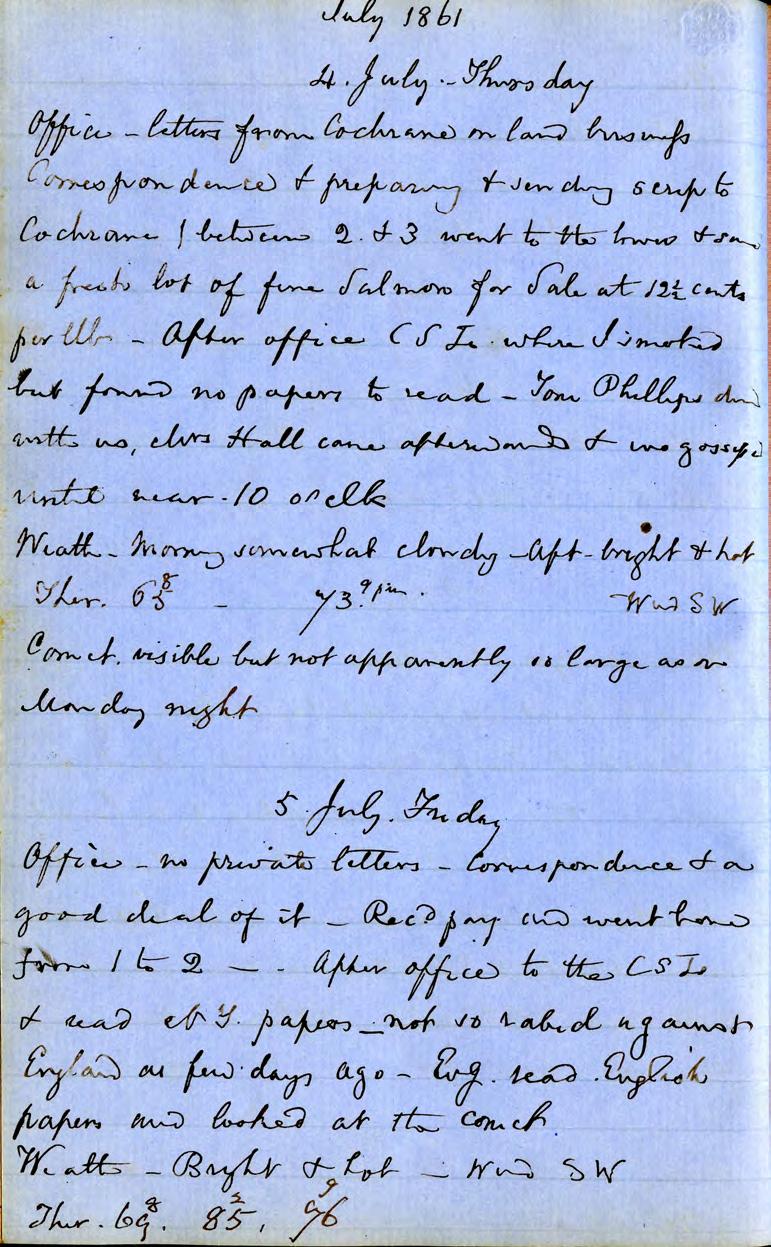 July 1861
4. July - Thursday
Office - letters from Cochrane on land business
Correspondence & preparing & sending scrip to
Cochrane / between 2 & 3 went to the & saw
a fresh lot of fine Salmon for Sale at 12½ cents
per lb - After office C S In. where I smoked
but found no papers to read - Tom Phillips din
with us, Mrs Hall came afterwards & we gossip
until near 10 o'clk
Weath - Morning somewhat cloudy - Aft - bright & hot
Ther. 73 9 pm. Wind SW
Comet. visible but not apparently so large as on
Monday night
5 July. Friday
Office - no private letters - Correspondence & a
good deal of it - Rec'd pay and went home
from 1 to 2 - . After office to the C S In
& read N Y. papers - not so rabid against
England as few days ago - Evg. read English
papers and looked at the comet
Weath - Bright & hot - Wind SW
Ther. 69 8. 85 2, 76 9